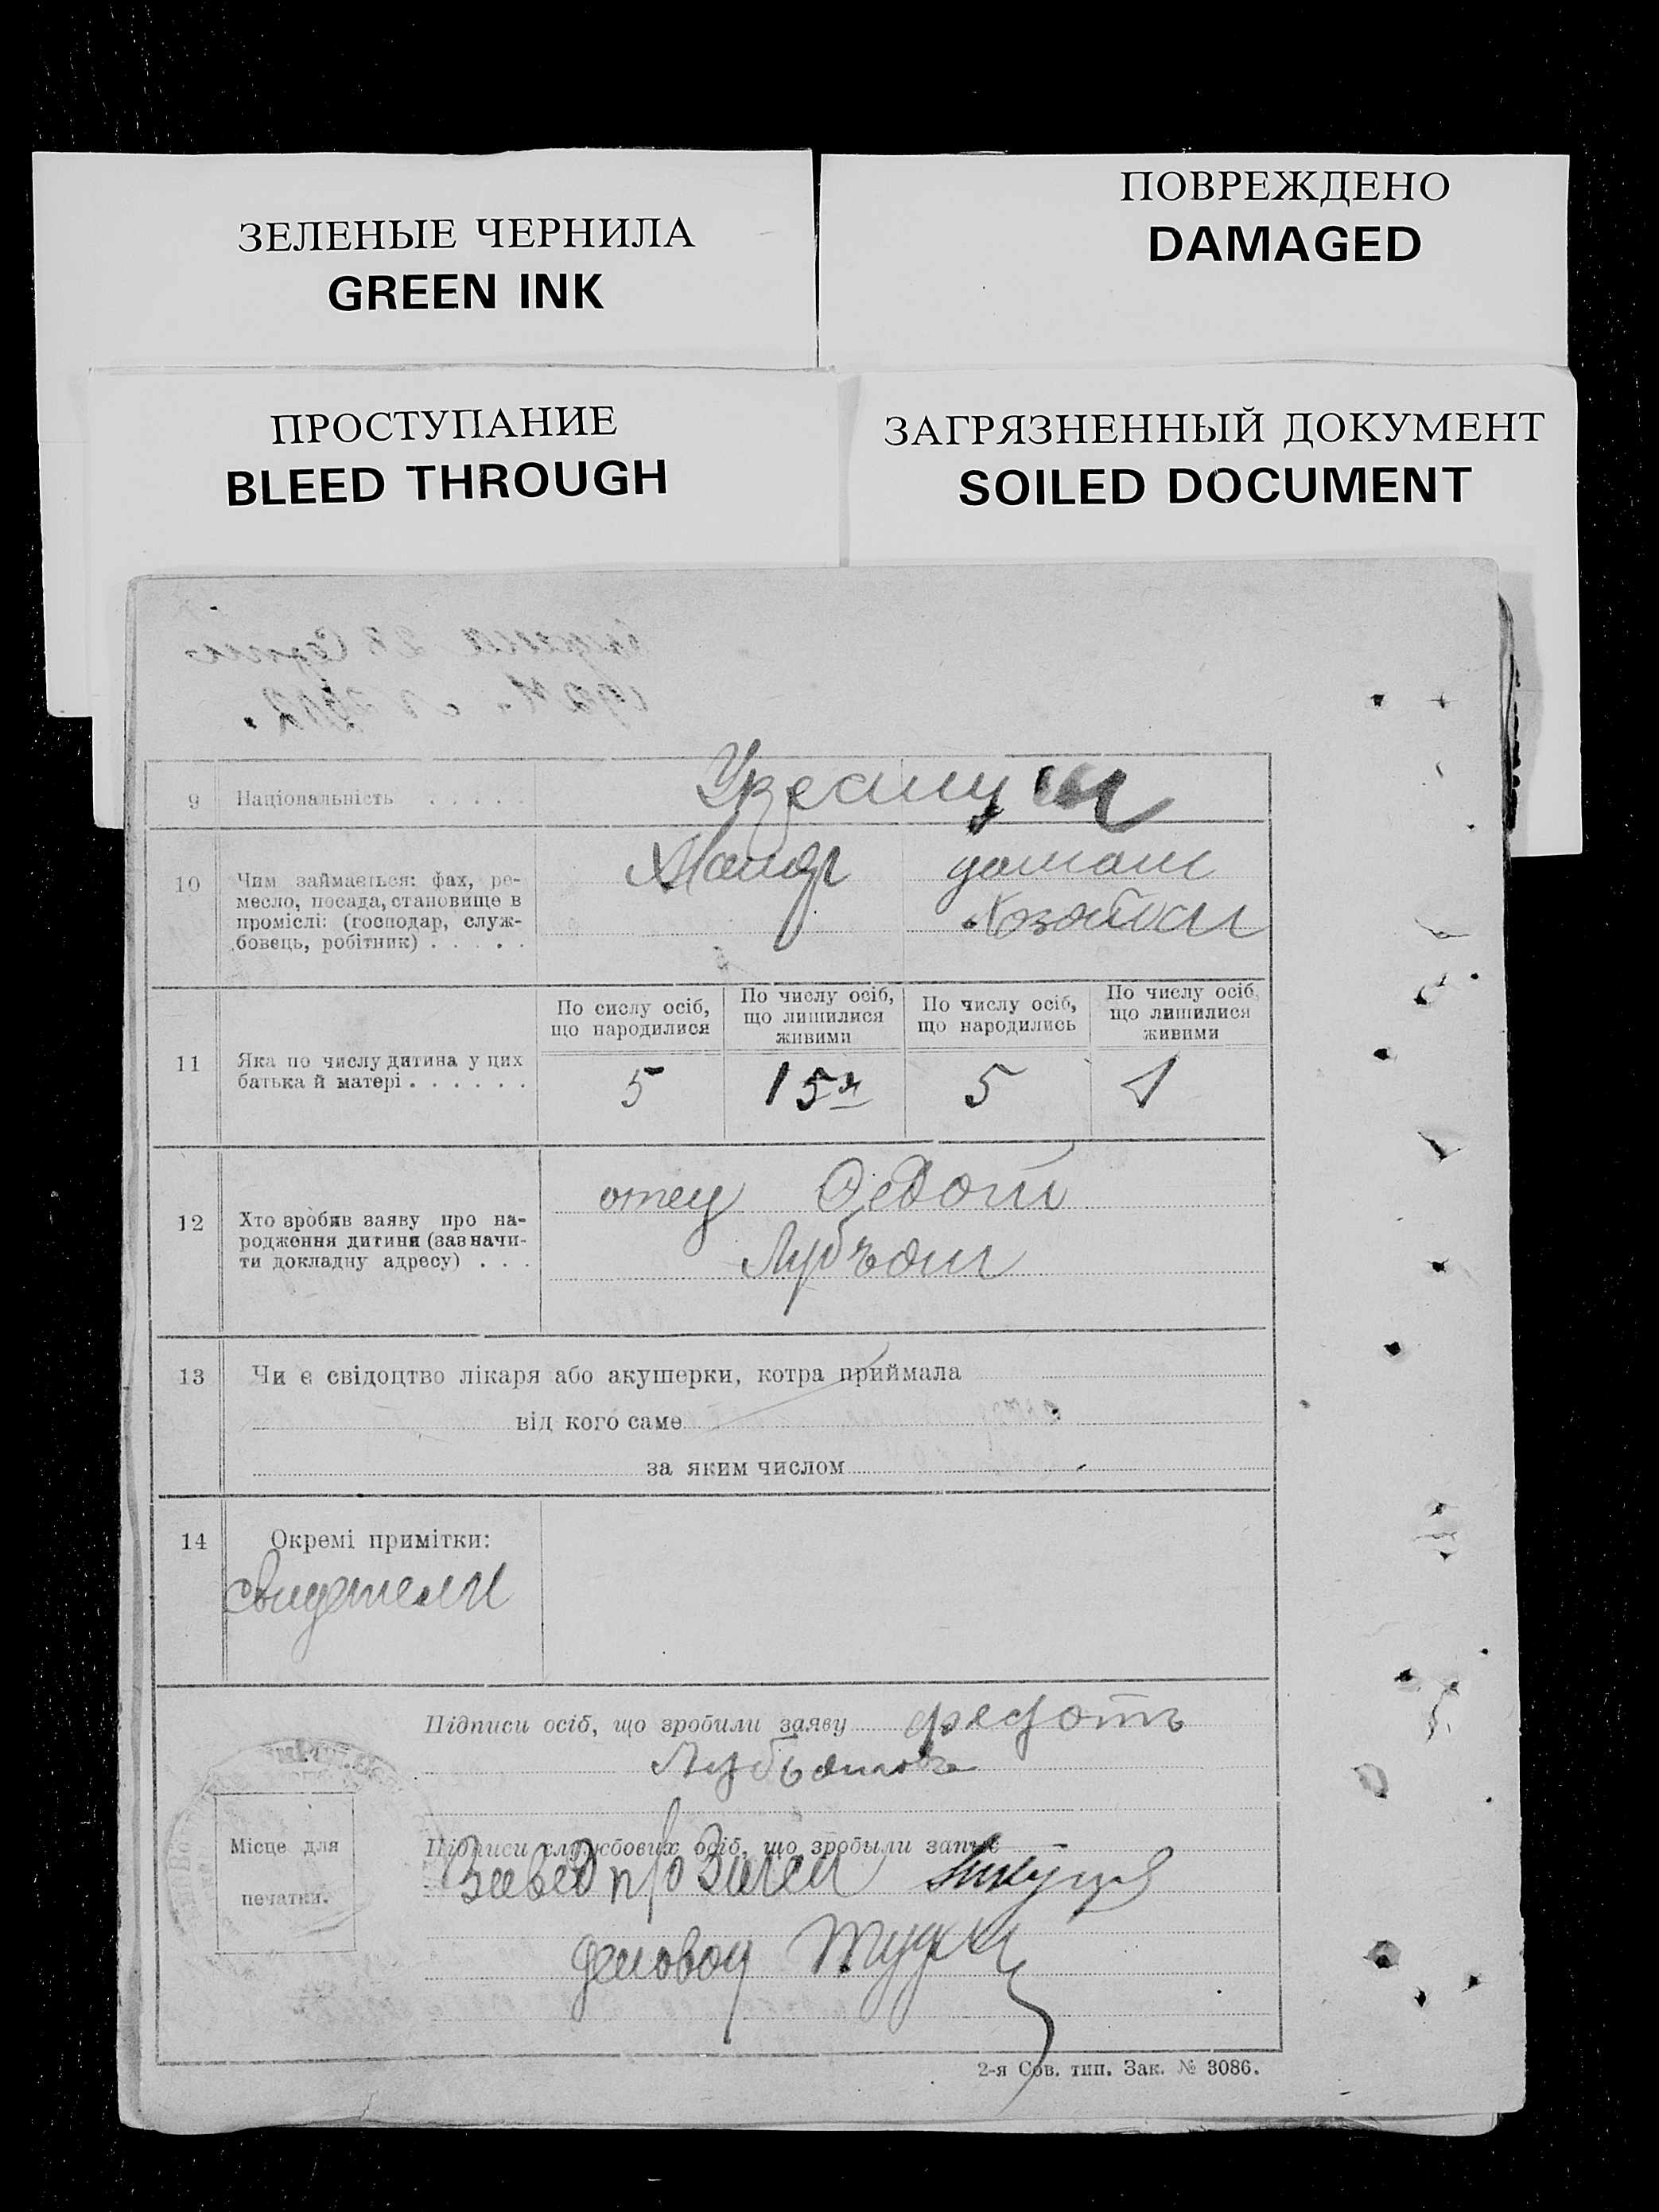 ЗЕЛЕНЫЕ ЧЕРНИЛА
GREEN INK
ПОВРЕЖДЕНО
DAMAGED
ПРОСТУПАНИЕ
BLEED THROUGH
ЗАГРЯЗНЕННЫЙ ДОКУМЕНТ
SOILED DOCUMENT
9 Національність . . . . .
10 Чим займається: фах, ре-
месло, посада, становище в
промислі: (господар, служ-
бовець, робітник) . . . . .
домаш
Хозяйка
По сислу осіб,
що народилися
По числу осіб,
що лишилися
живими
По числу осіб,
що народились
По числу осіб,
що лишилися
живими
11 Яка по числу дитина у цих
батька й матері . . . . . .
5 1 5 1
12 Хто зробив заяву про на-
родження дитини (зазначи-
ти докладну адресу) . . .
отец Федот
13 Чи є свідоцтво лікаря або акушерки, котра приймала
від кого саме
за яким числом
14 Окремі примітки:
свидетели
Підписи осіб, що зробили заяву федотъ
Місце для
печатки.
Підписи службових осіб, що зробыли запис
деловод
2-я Сов. тип. Зак. № 3086.